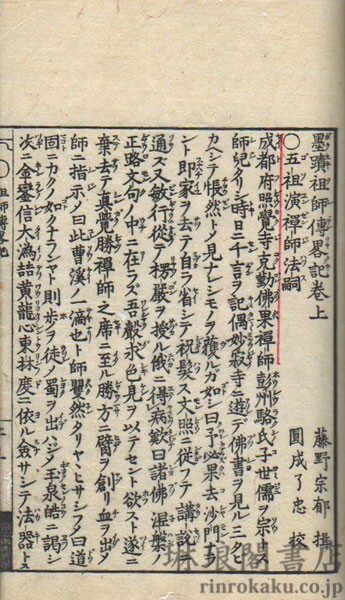 墨蹟祖師傳畧記卷上
藤野宗郁 撰
○五祖演禪師法嗣
圓成了忠 校
成都府照覺寺克勤佛果禪師彭州駱氏子世儒ヲ宗トス
師兒タリシ時日ニ千言ヲ記ス偶妙寂寺ニ遊テ佛書ヲ見ル三タヒ
カヘシテ悵然トノ見ナシモノヲ獲ルカ如シ曰予必果去沙門ナラ
ント即家ヲ去テ自ラ省シテ祝髮ス文照ニ從フテ講說ニ
通ス又敏行從テ楞嚴ヲ授ル俄ニ得病歎曰諸佛涅槃
正路文句ノ中ニ在ラズ吾聲求色見ヲ以テセント欲スト遂ニ
棄去テ真覺勝禪師之席ニ至ル勝方ニ臂ヲ創リ血ヲ出ノ
師ニ指示ノ曰此曹溪ノ一滴也ト師矍然タリヤヽヒサシフノ曰道
固ニカクノ如クナランヤト則歩ヲ徒ノ蜀ヲ出ハシメ玉泉皓ニ謁シ
次ニ金鑾信大潙喆黃龍心東林度ニ依ル僉サシテ法器トス
祖師傳畧記
琳琅閣書店
rinrokaku.co.jp